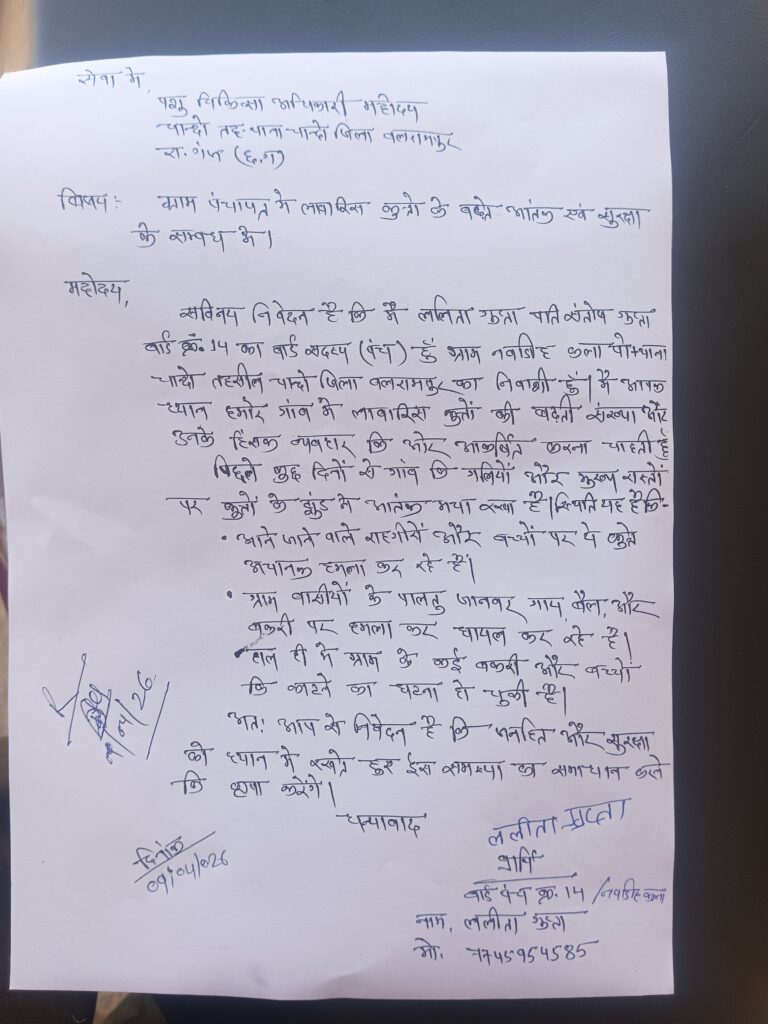 सेवा मे,
पशु चिकित्सा अधिकारी महोदय
चान्दो तह. थाना चान्दो जिला बलरामपुर
रा. गंज (छ.ग)
विषय:- ग्राम पंचायत मे लावारिस कुत्तो के बढ़ते आंतक एवं सुरक्षा
के सम्बध मे।
महोदय,
सविनय निवेदन है कि मै ललिता गुप्ता पति संतोष गुप्ता
वार्ड क्रं. 14 का वार्ड सदस्य (पंच) हुं ग्राम नवाडीह कला पो+थाना
चान्दो तहसील चान्दो जिला बलरामपुर का निवासी हुं। मै आपक
ध्यान हमारे गांव मे लावारिस कुतों की बढ़ती संख्या और
उनके हिंसक व्यवहार कि ओर आकर्षित करना चाहती हुँ
पिछले कुछ दिनों से गांव कि गलियों और मुख्य रास्तों
पर कुतों के झुंड मे आतंक मचा रखा है। स्थिति यह है कि-
• आने जाने वाले राहगीरों और बच्चों पर ये कुते
अचानक हमला कर रहे हैं।
• ग्राम वासीयों के पालतु जानवर गाय, बैल, और
बकरी पर हमला कर घायल कर रहे है।
• हाल ही मे ग्राम के कई बकरी और बच्चों
कि काटने का घटना हो चुकी है।
अत! आप से निवेदन है कि जनहित और सुरक्षा
को ध्यान मे रखते हुए ईस समस्या का समाधान करने
कि कृपा करेंगे।
धन्यावाद
04/26
दिनांक
09/04/026
ललीता गुप्ता
प्रार्थि
वार्ड पंच क्रं. 14 / नवाडीह कला
नाम, ललीता गुप्ता
मो. 7745954585